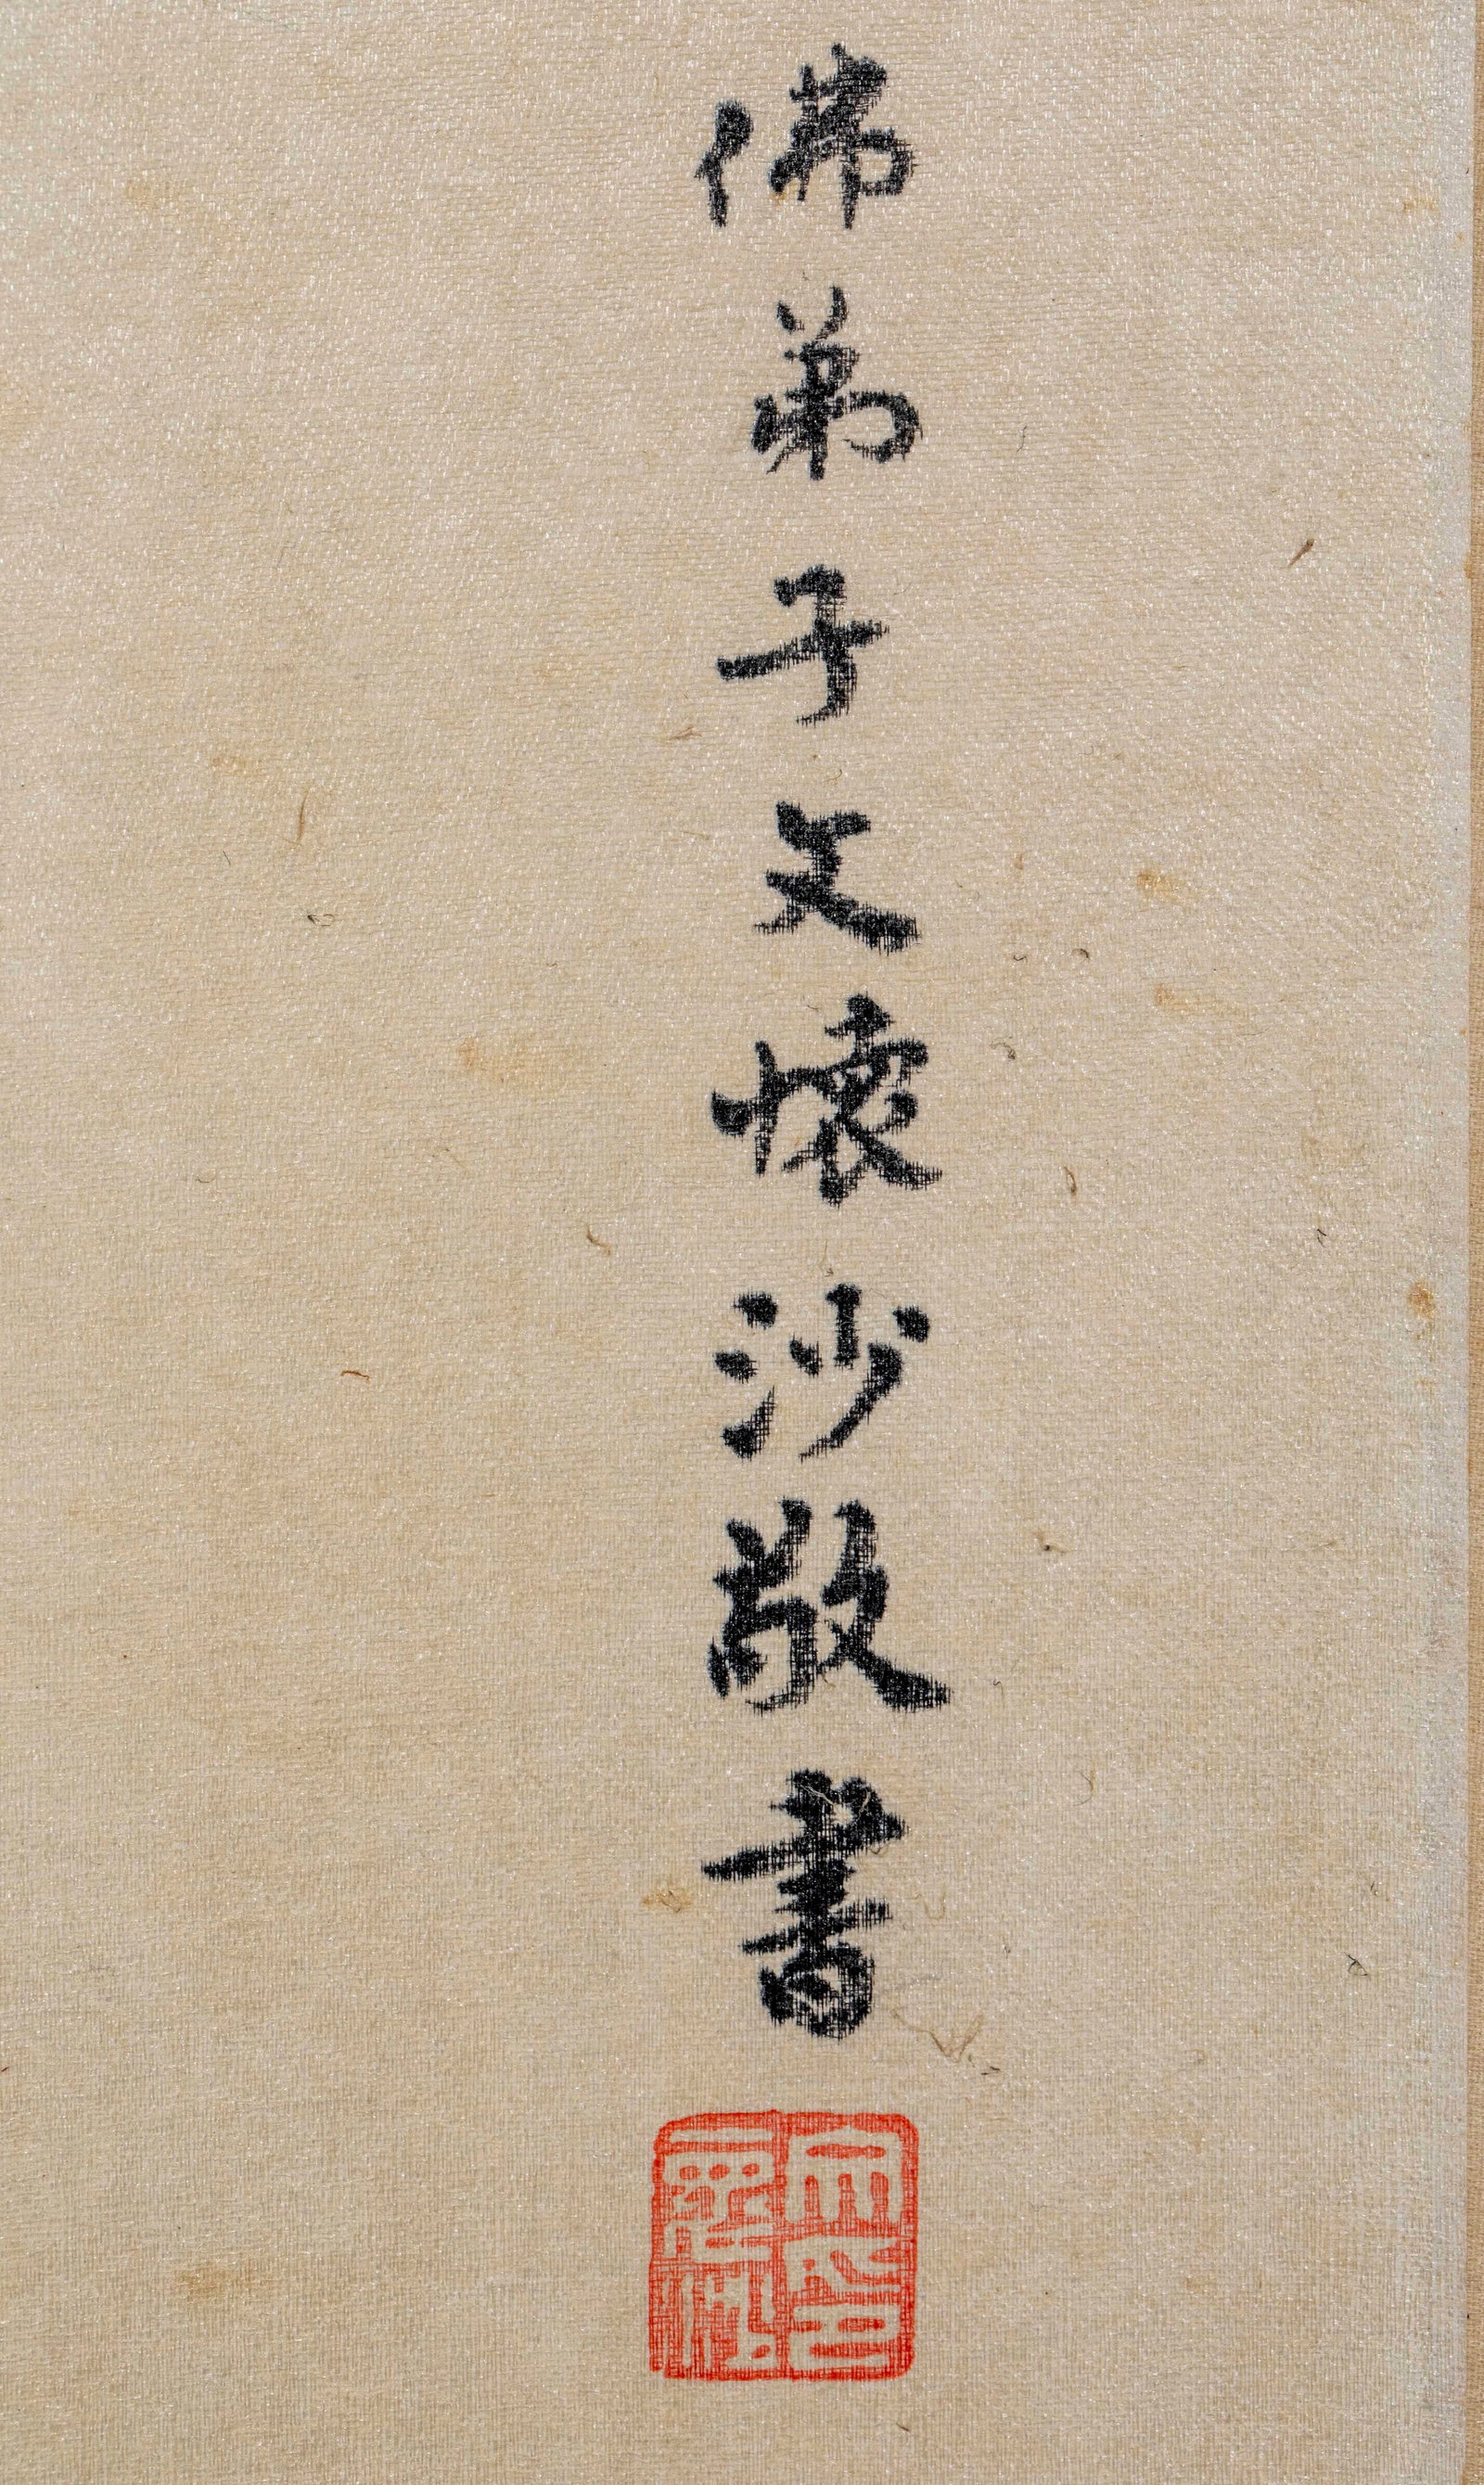 佛弟子文懷沙敬書